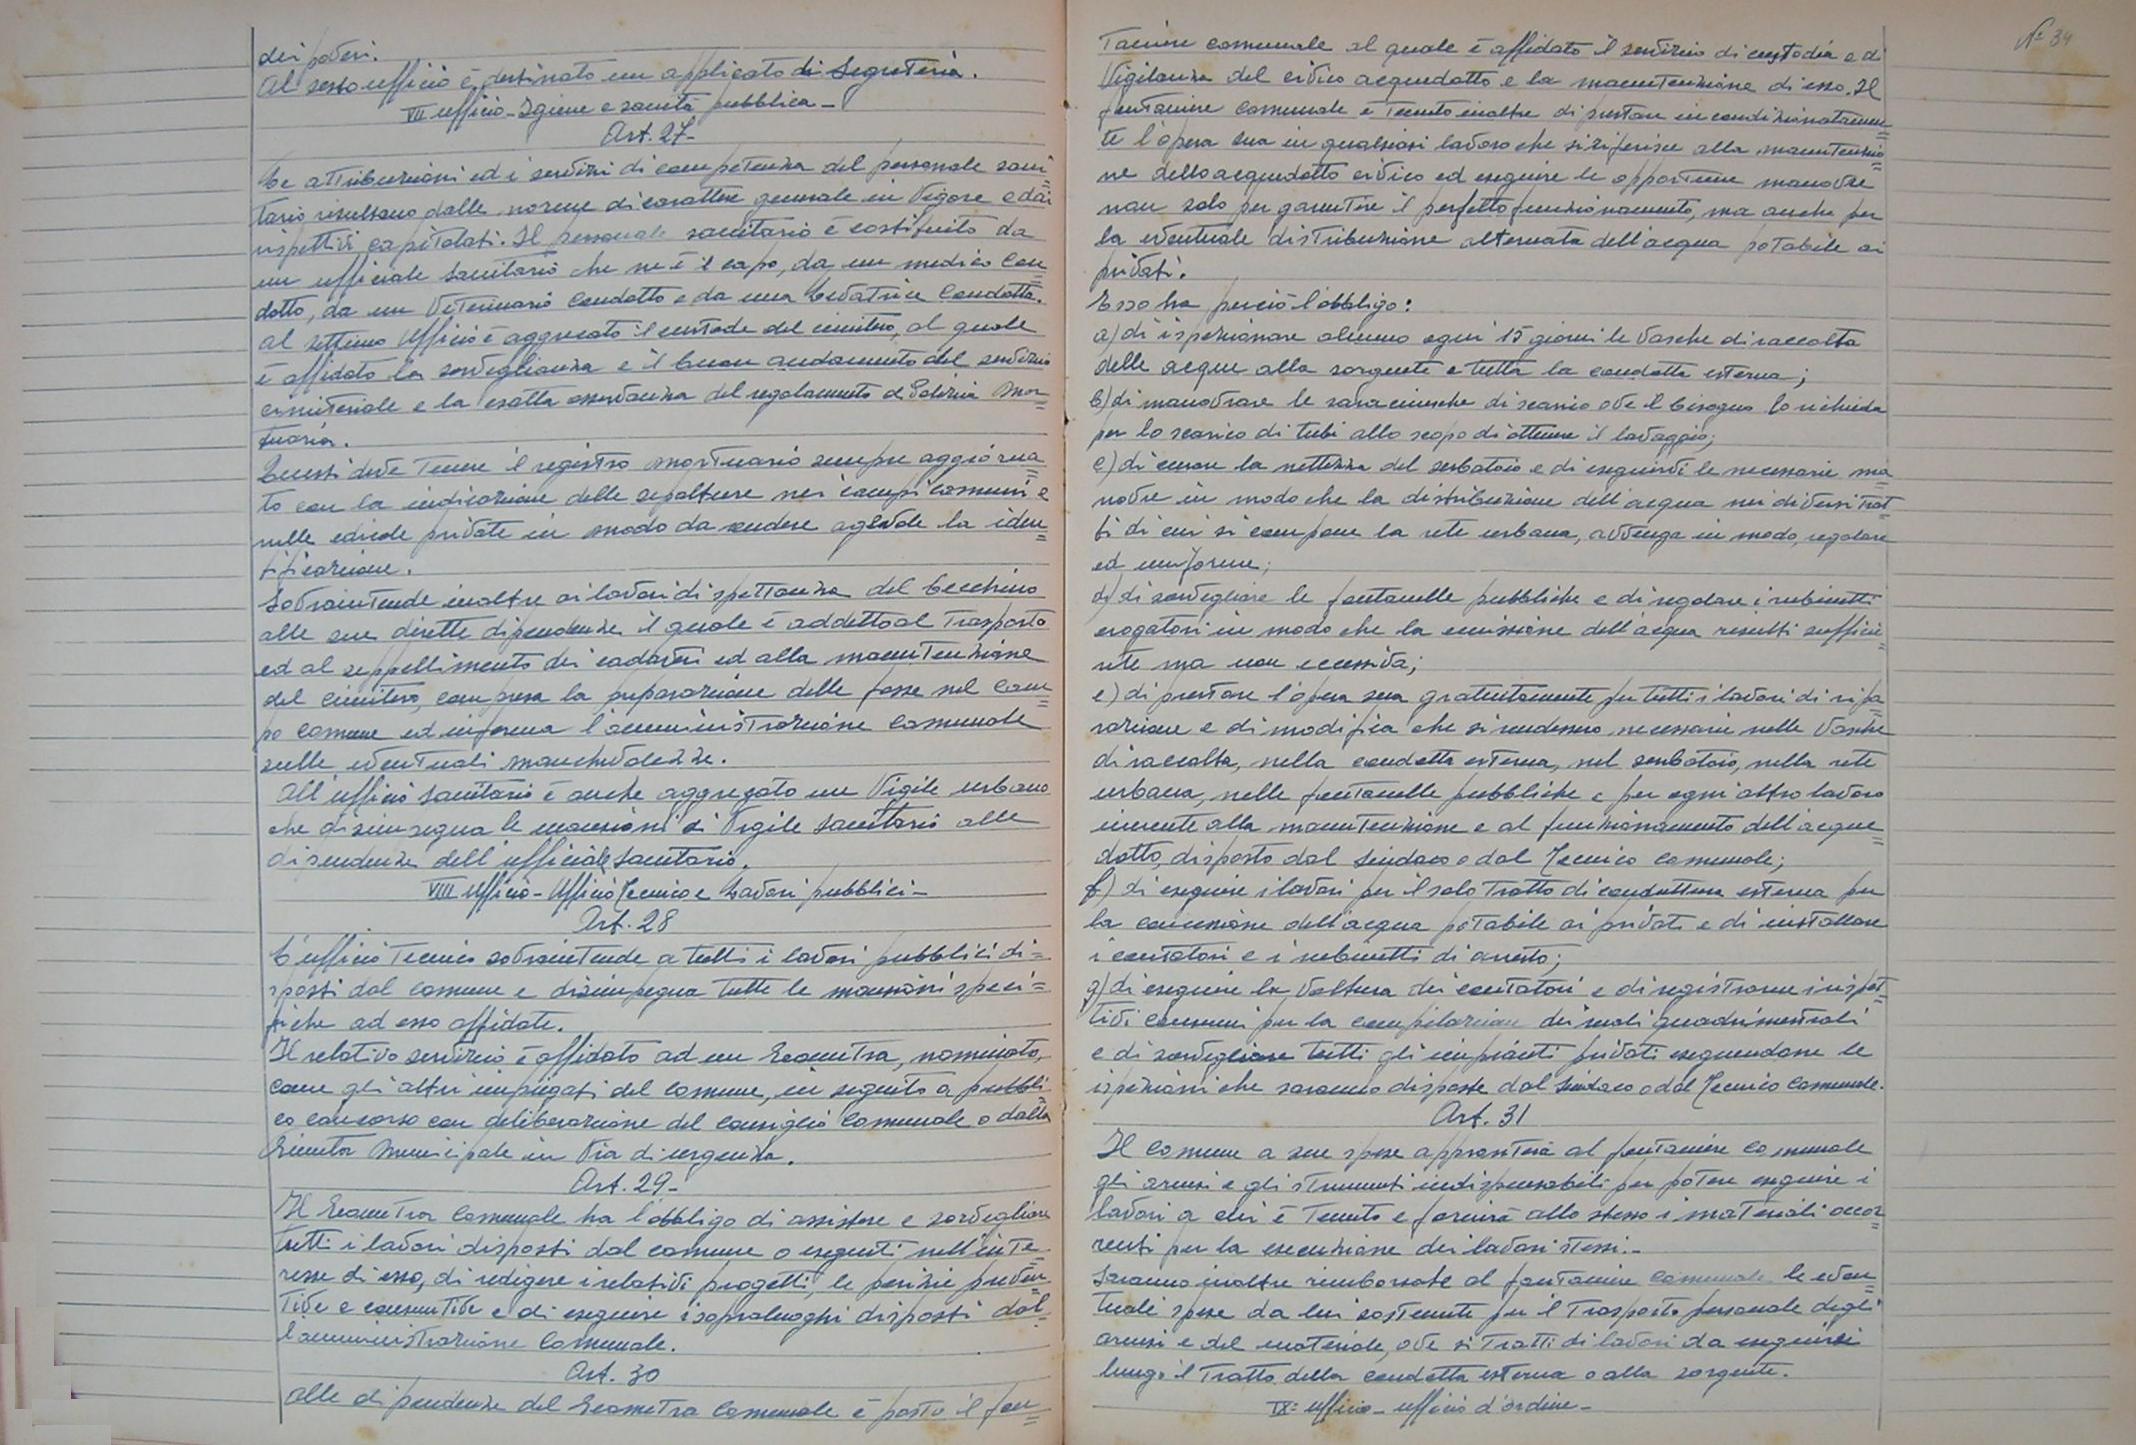 dei poderi.
Al sesto ufficio è destinato un applicato di Segreteria.
VII ufficio - Igiene e sanità pubblica -
Art. 27 -
Le attribuzioni ed i servizi di competenza del personale sani=
tario risultano dalle norme di carattere generale in vigore e dai
rispettivi capitolati. Il personale sanitario è costituito da
un ufficiale sanitario che ne è il capo, da un medico con=
dotto, da un Veterinario Condotto e da una Levatrice Condotta.
Al settimo Ufficio è aggregato il custode del cimitero, al quale
è affidato la sorveglianza e il buon andamento del servizio
cimiteriale e la esatta osservanza del regolamento di Polizia Mor=
tuaria.
Questi deve tenere il registro mortuario sempre aggiorna=
to con la indicazione delle sepolture nei campi comuni e
nelle edicole private in modo da rendere agevole la iden=
tificazione.
Sovraintende inoltre ai lavori di spettanza del becchino
alle sue dirette dipendenze il quale è addetto al trasporto
ed al seppellimento dei cadaveri ed alla manutenzione
del cimitero, compresa la preparazione delle fosse nel cam=
po comune ed informa l'amministrazione comunale
sulle eventuali manchevolezze.
All'ufficio sanitario è anche aggregato un Vigile urbano
che disimpegna le mansioni di Vigile Sanitario alle
dipendenze dell'ufficiale sanitario.
VIII Ufficio - Ufficio Tecnico e Lavori pubblici -
Art. 28
L'ufficio Tecnico sovraintende a tutti i lavori pubblici di=
sposti dal comune e disimpegna tutte le mansioni speci=
fiche ad esso affidate.
Il relativo servizio è affidato ad un Geometra, nominato,
come gli altri impiegati del comune, in seguito a pubbli=
co concorso con deliberazione del consiglio Comunale o dalla
Giunta Municipale in via di urgenza.
Art. 29 -
Il Geometra Comunale ha l'obbligo di assistere e sorvegliare
tutti i lavori disposti dal comune o eseguiti nell'inte=
resse di esso, di redigere i relativi progetti, le perizie preven=
tive e consuntive e di eseguire i sopraluoghi disposti dal=
l'amministrazione Comunale.
Art. 30
Alle dipendenze del Geometra Comunale è posto il fon=
N° 34
taniere comunale al quale è affidato il servizio di custodia e di
vigilanza del civico acquedotto e la manutenzione di esso. Il
fontaniere comunale è tenuto inoltre di prestare incondizionatamen=
te l'opera sua in qualsiasi lavoro che si riferisce alla manutenzio=
ne dello acquedotto civico ed eseguire le opportune manovre
non solo per garantire il perfetto funzionamento, ma anche per
la eventuale distribuzione alternata dell'acqua potabile ai
privati.
Esso ha perciò l'obbligo:
a) di ispezionare almeno ogni 15 giorni le vasche di raccolta
delle acque alla sorgente e tutta la condotta esterna;
b) di manovrare le saracinesche di scarico ove il bisogno lo richieda
per lo scarico di tubi allo scopo di ottenere il lavaggio;
c) di curare la nettezza del serbatoio e di eseguirvi le necessarie ma=
novre in modo che la distribuzione dell'acqua nei diversi trat=
ti di cui si compone la rete urbana, avvenga in modo, regolare
ed uniforme;
d) di sorvegliare le fontanelle pubbliche e di regolare i rubinetti
erogatori in modo che la emissione dell'acqua risulti sufficie=
nte ma non eccessiva;
e) di prestare l'opera sua gratuitamente per tutti i lavori di ripa=
razione e di modifica che si rendessero necessarie nelle vasche
di raccolta, nella condotta esterna, nel serbatoio, nella rete
urbana, nelle fontanelle pubbliche e per ogni altro lavoro
inerente alla manutenzione e al funzionamento dell'acque=
dotto, disposto dal Sindaco o dal Tecnico comunale;
f) di eseguire i lavori per il solo tratto di conduttura esterna per
la concessione dell'acqua potabile ai privati e di installare
i contatori e i rubinetti di arresto;
g) di eseguire la voltura dei contatori e di registrarne i rispet=
tivi consumi per la compilazione dei ruoli quadrimestrali
e di sorvegliare tutti gli impianti privati eseguendone le
ispezioni che saranno disposte dal Sindaco o dal Tecnico Comunale.
Art. 31
Il Comune a sue spese appronterà al fontaniere comunale
gli arnesi e gli strumenti indispensabili per potere eseguire i
lavori a cui è tenuto e fornirà allo stesso i materiali occor=
renti per la esecuzione dei lavori stessi.-
Saranno inoltre rimborsate al fontaniere comunale le even=
tuali spese da lui sostenute per il trasporto personale degli
arnesi e del materiale, ove si tratti di lavori da eseguirsi
lungo il tratto della condotta esterna o alla sorgente.
IX° Ufficio - ufficio d'ordine -